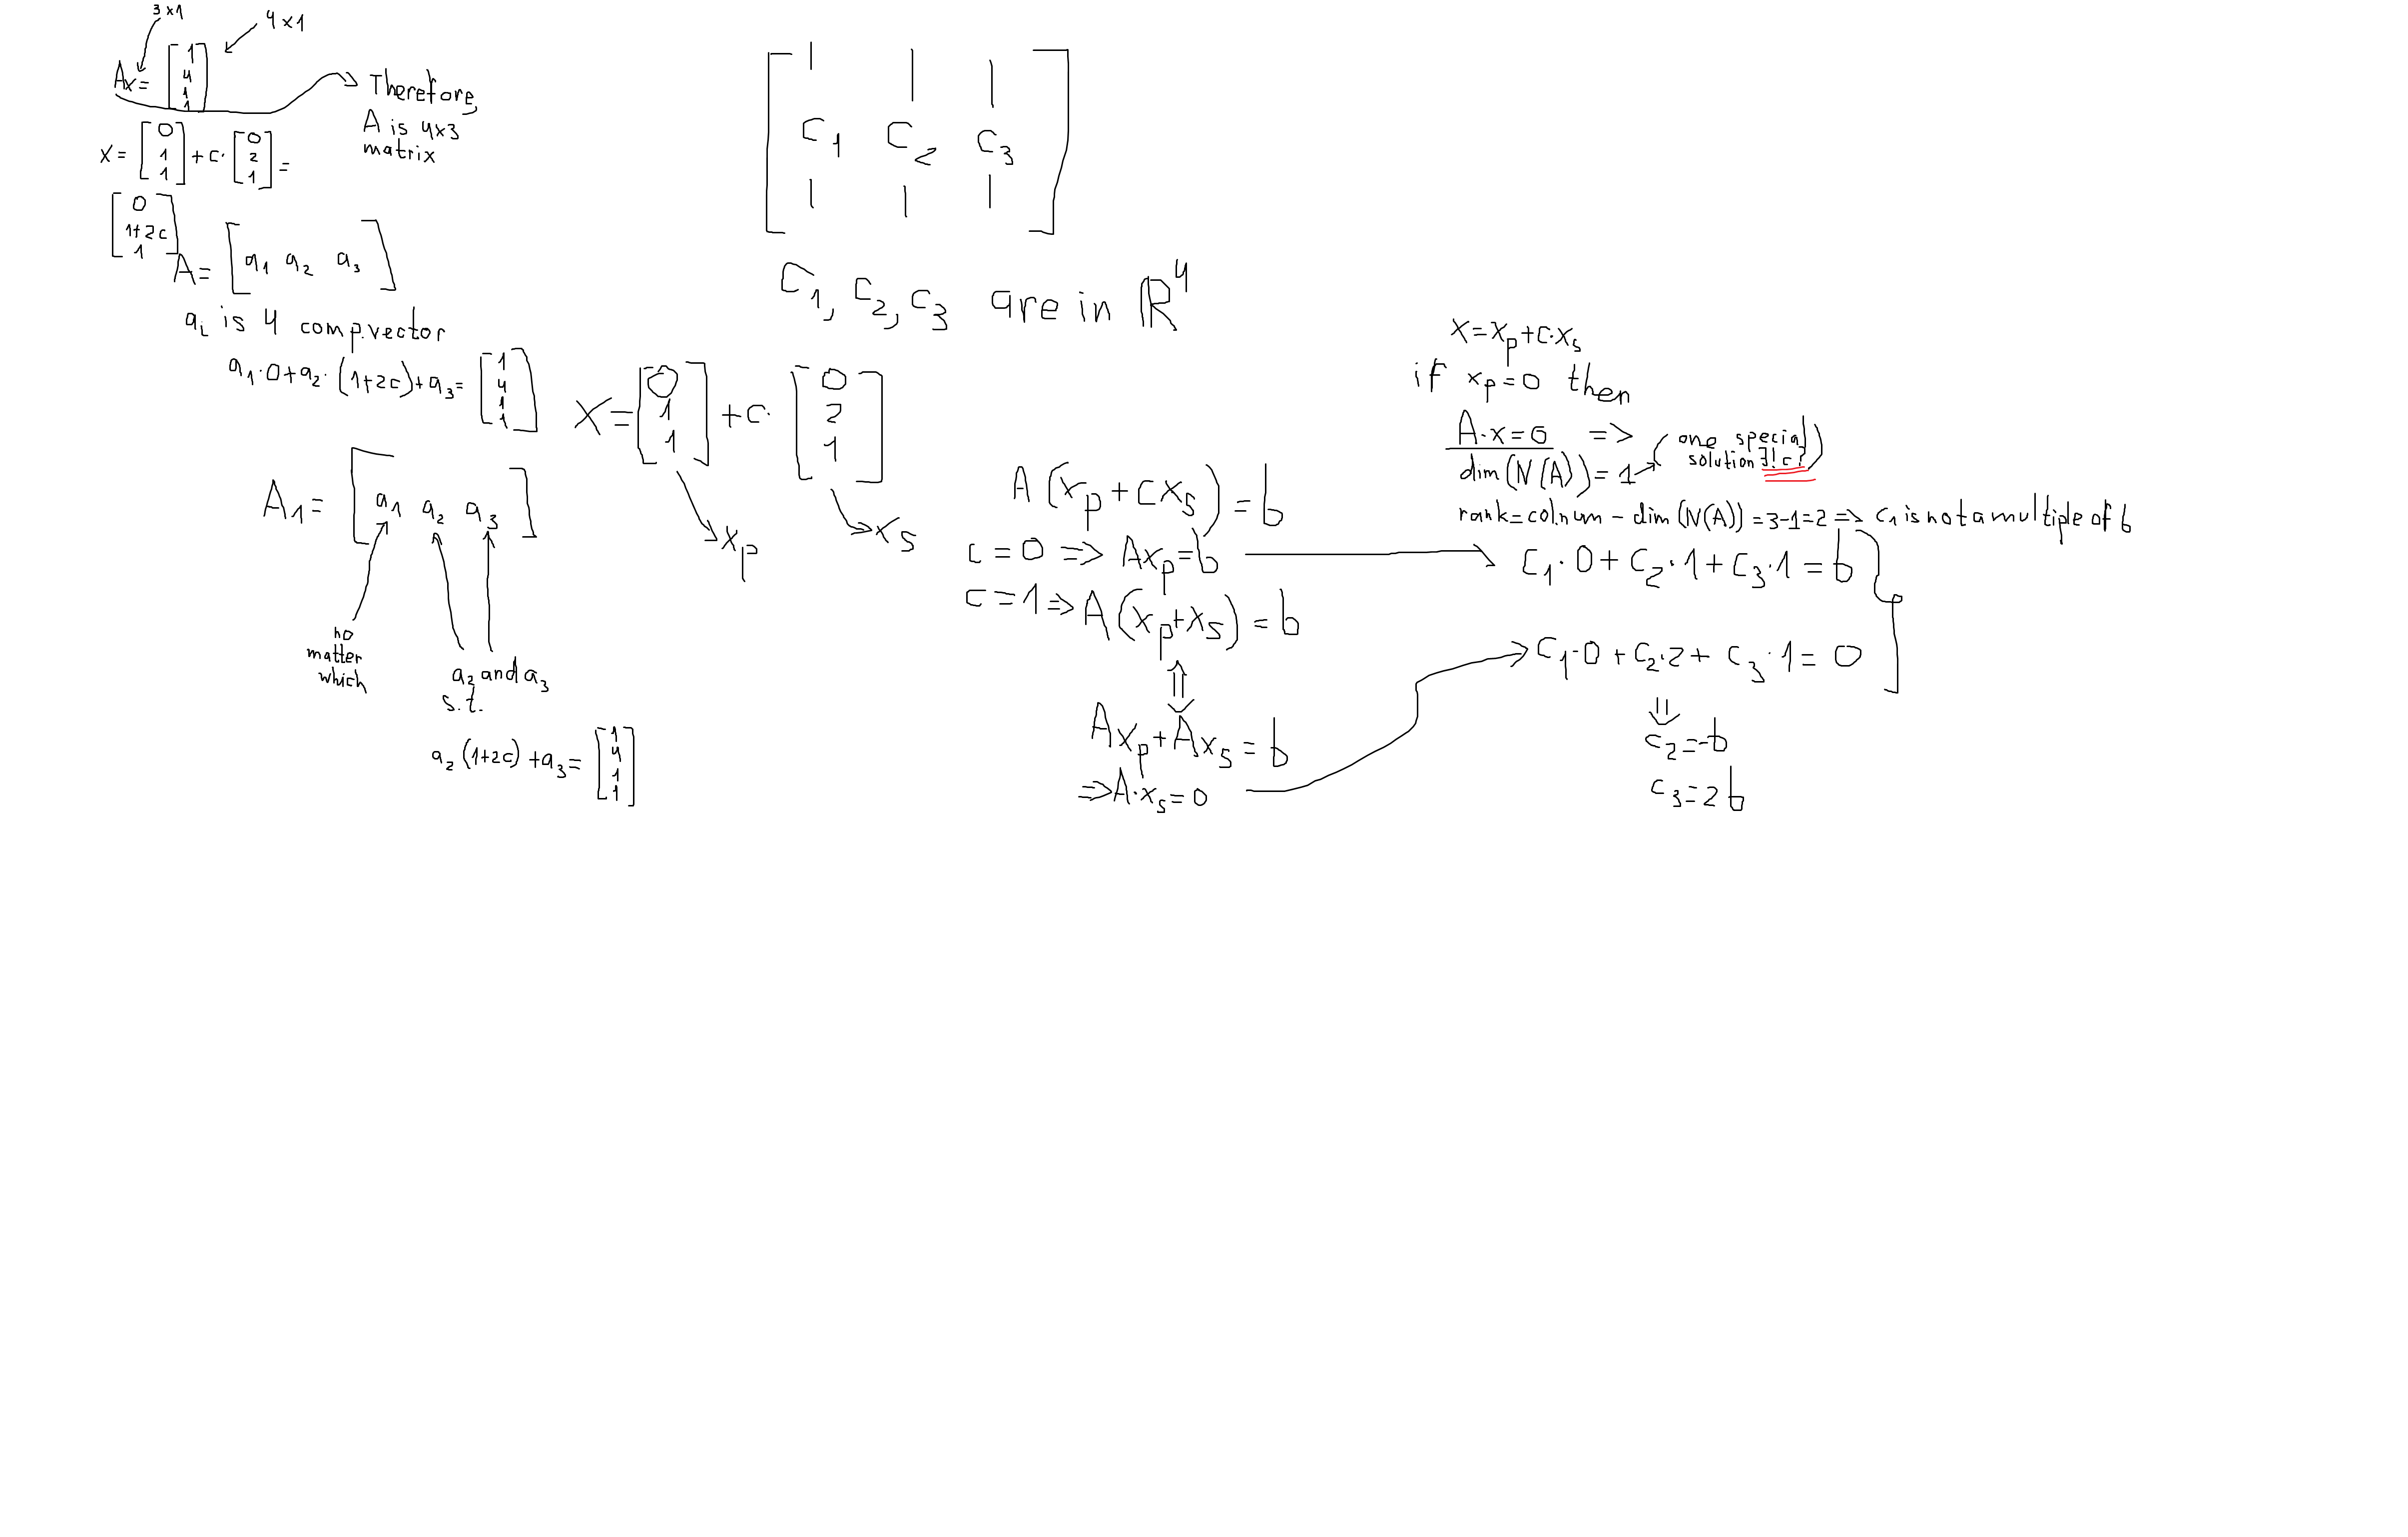 3×1
4×1
Ax= [1 4 1 1]
Therefore,
A is 4×3
matrix
x= [0 1 1] +c· [0 2 1] =
[0 1+2c 1]
A= [a₁ a₂ a₃]
aᵢ is 4 comp.vector
a₁·0+a₂·(1+2c)+a₃= [1 4 1 1]
A₁= [a₁ a₂ a₃]
no
matter
which
a₂ and a₃
s.t.
a₂(1+2c)+a₃= [1 4 1 1]
[C₁ C₂ C₃]
C₁, C₂, C₃ are in ℝ⁴
X= [0 1 1] +c· [0 2 1]
xₚ
xₛ
A(xₚ+cxₛ)=b
c=0 => Axₚ=b
c=1=> A(xₚ+xₛ)=b
⇕
Axₚ+Axₛ=b
=>A·xₛ=0
x=xₚ+c·xₛ
if xₚ=0 then
A·x=0 => (one special
solution ∃! c!)
dim(N(A))=1
rank=col.num-dim(N(A))=3-1=2=> c₁ is not a multiple of b
C₁·0+C₂·1+C₃·1=b
C₁·0+C₂·2+C₃·1=0
⇓
c₂=-b
c₃=2b